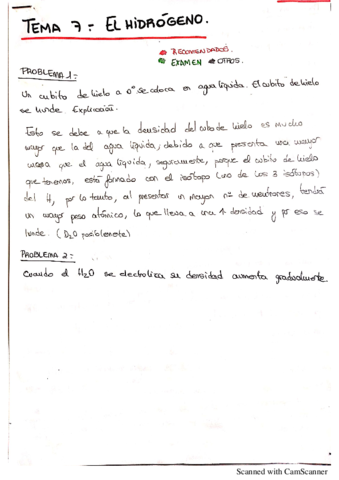 TEMA 7: EL HIDRÓGENO.
RECOMENDADOS.
EXAMEN OTROS.
PROBLEMA 1:
Un cubito de hielo a 0° se coloca en agua líquida. El cubito de hielo
se hunde. Explicación.
Esto se debe a que la densidad del cubo de hielo es mucho
mayor que la del agua líquida, debido a que presenta una mayor
masa que el agua líquida, seguramente, porque el cubito de hielo
que tenemos, está formado con el isótopo (uno de los 3 isótopos)
del H, por lo tanto, al presentar un mayor nº de neutrones, tendrá
un mayor peso atómico, lo que lleva a una densidad y por eso se
hunde. (D₂O posiblemente)
PROBLEMA 2:
Cuando el H₂O se electroliza su densidad aumenta gradualmente.
Scanned with CamScanner